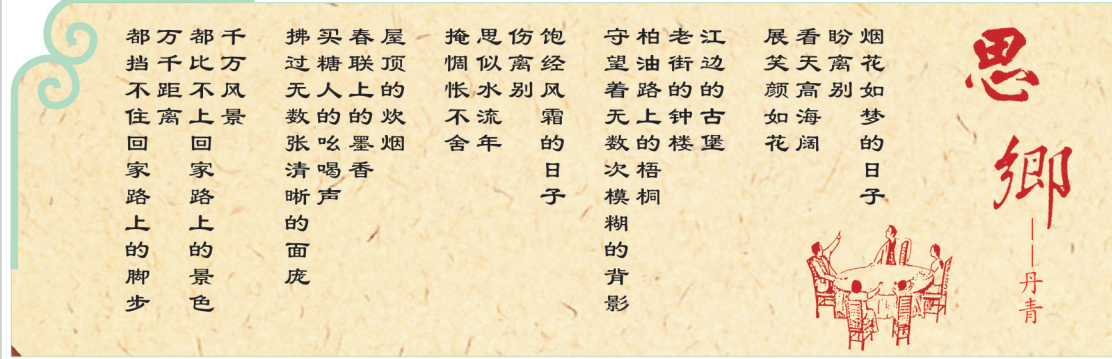 思鄉
——丹青
烟花如梦的日子
盼离别
看天高海阔
展笑颜如花
江边的古堡
老街的钟楼
柏油路上的梧桐
守望着无数次模糊的背影
饱经风霜的日子
伤离别
思似水流年
掩惆怅不舍
屋顶的炊烟
春联上的墨香
买糖人的吆喝声
拂过无数张清晰的面庞
千万风景
都比不上回家路上的景色
万千距离
都挡不住回家路上的脚步